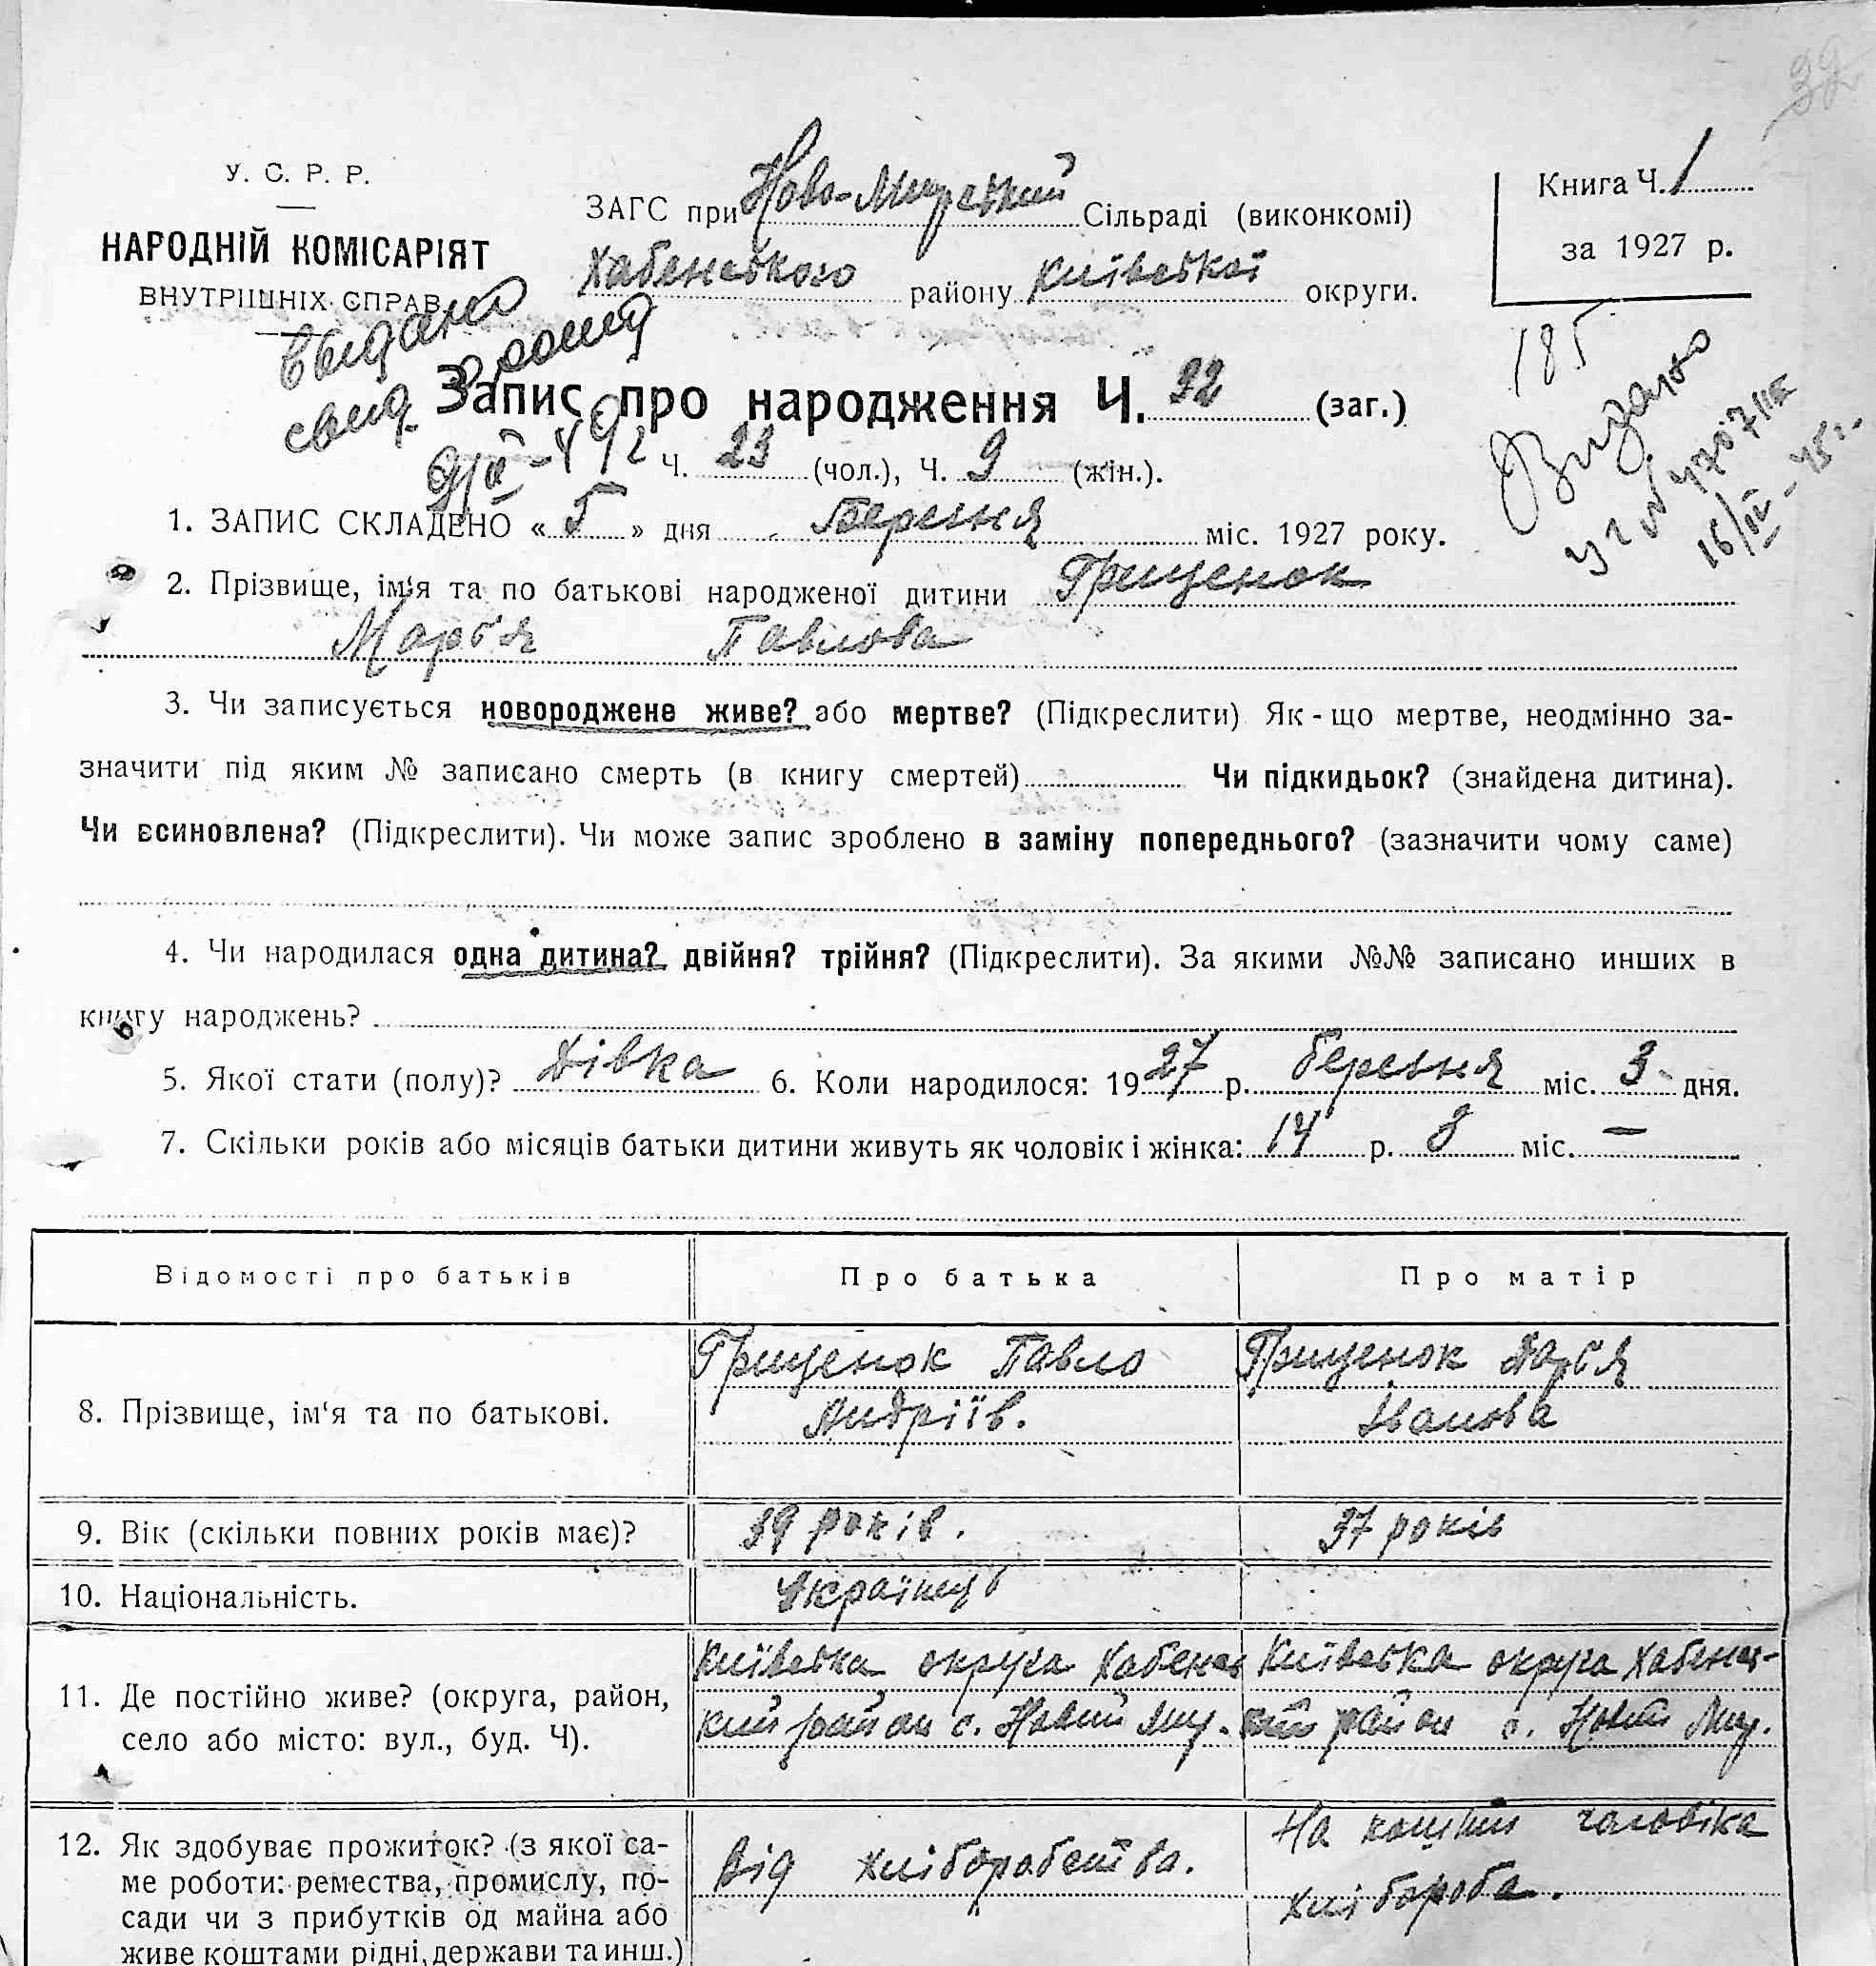 У. С. Р. Р.
НАРОДНІЙ КОМІСАРІЯТ
ВНУТРІШНІХ СПРАВ
ЗАГС при Ново-Мирській Сільраді (виконкомі)
Хабенського району Київської округи.
Книга Ч. 1
за 1927 р.
32
выдано
свид. о рожд
185
Видано
16/IV-45г.
Запис про народження Ч. 32 (заг.)
Ч. 23 (чол.), Ч. 9 (жін.).
1. ЗАПИС СКЛАДЕНО « 5 » дня Березня міс. 1927 року.
2. Прізвище, ім'я та по батькові народженої дитини Грищенок
Мар'я Павлова
3. Чи записується новороджене живе? або мертве? (Підкреслити) Як-що мертве, неодмінно за-
значити під яким № записано смерть (в книгу смертей) Чи підкидьок? (знайдена дитина).
Чи всиновлена? (Підкреслити). Чи може запис зроблено в заміну попереднього? (зазначити чому саме)
4. Чи народилася одна дитина? двійня? трійня? (Підкреслити). За якими №№ записано инших в
книгу народжень?
5. Якої стати (полу)? Дівка 6. Коли народилося: 1927 р. березня міс. 3 дня.
7. Скільки років або місяців батьки дитини живуть як чоловік і жінка: 14 р. 8 міс. —
Відомості про батьків Про батька Про матір
8. Прізвище, ім'я та по батькові.
Грищенок Павло
Андріїв.
Грищенок Дар'я
Іванова
9. Вік (скільки повних років має)? 39 років. 37 років
10. Національність. Українці
11. Де постійно живе? (округа, район,
село або місто: вул., буд. Ч).
Київська округа Хабенс
кий район с. Новий Мир.
Київська округа Хабенсь-
кий район с. Новий Мир.
12. Як здобуває прожиток? (з якої са-
ме роботи: ремества, промислу, по-
сади чи з прибутків од майна або
живе коштами рідні, держави та инш.)
Від хліборобства.
На кошти чоловіка
хлібороба.